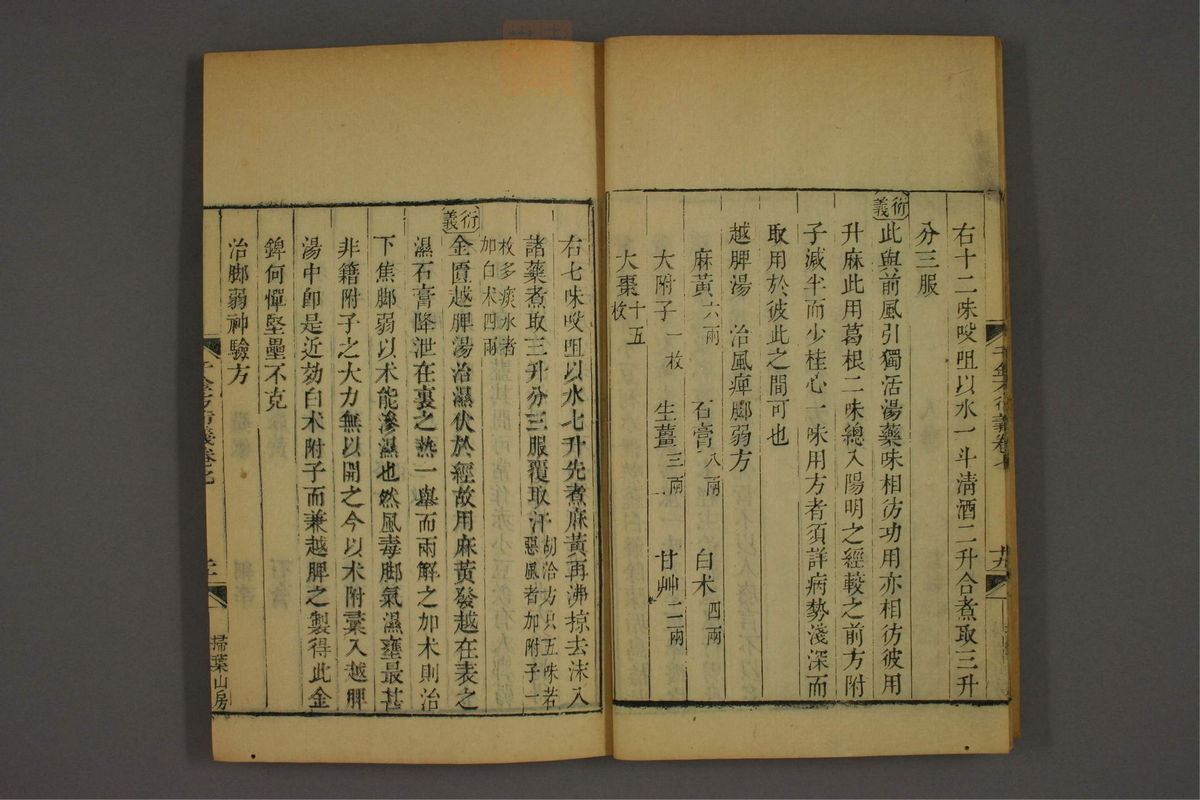 右十二味㕮咀以水一斗清酒二升合煮取三升
分三服
衍義
此與前風引獨活湯藥味相彷功用亦相彷彼用
升麻此用葛根二味總入陽明之經較之前方附
子減半而少桂心一味用方者須詳病勢淺深而
取用於彼此之間可也
越脾湯　治風痺脚弱方
麻黃六兩　石膏八兩　白朮四兩
大附子一枚　生薑三兩　甘艸二兩
大棗十五枚
右七味㕮咀以水七升先煮麻黃再沸掠去沫入
諸藥煮取三升分三服覆取汗胡洽方只五味若惡風者加附子一
枚多痰水者加白朮四兩
衍義
金匱越脾湯治濕伏於經故用麻黃發越在表之
濕石膏降泄在裏之熱一舉而兩解之加朮則治
下焦脚弱以朮能滲濕也然風毒脚氣濕壅最甚
非籍附子之大力無以開之今以朮附彙入越脾
湯中卽是近効白朮附子而兼越脾之製得此金
錍何憚堅壘不克
治脚弱神驗方
千金方衍義卷七
掃葉山房